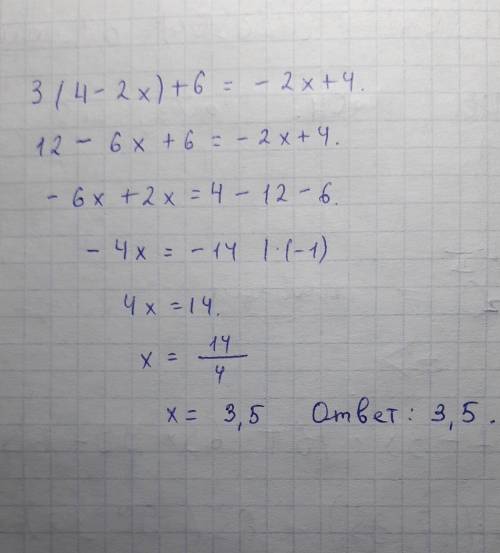 3(4-2x)+6 = -2x+4.
12 - 6x + 6 = -2x+4.
-6x+2x = 4-12-6.
-4x = -14 |·(-1)
4x = 14.
x = 14/4
x = 3,5 Ответ: 3,5.